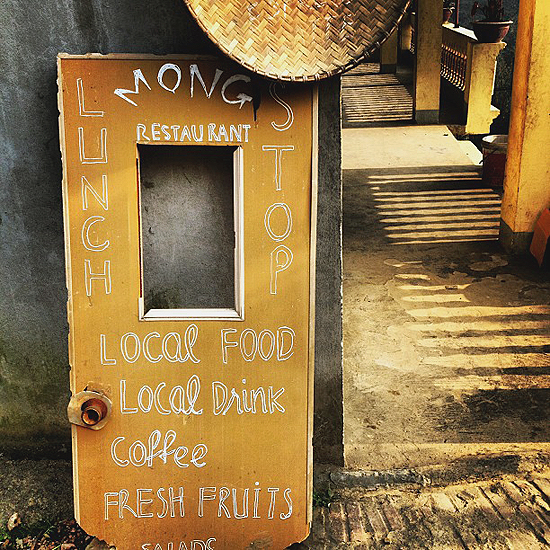 MONG
RESTAURANT
LUNCH
STOP
LOCAL FOOD
Local Drink
Coffee
FRESH FRUITS
SALADS